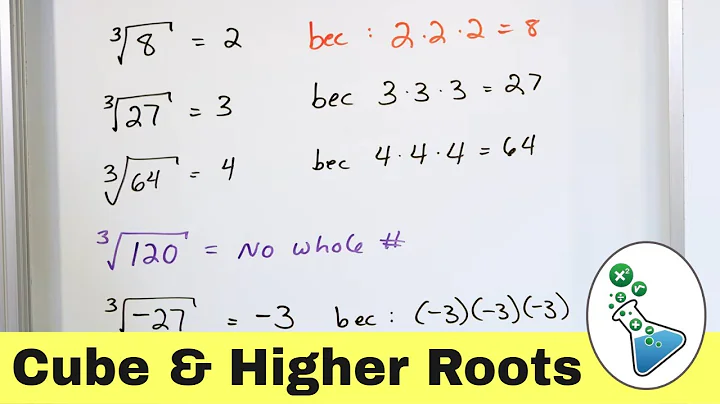 ∛8 = 2 bec : 2 · 2 · 2 = 8
∛27 = 3 bec 3 · 3 · 3 = 27
∛64 = 4 bec 4 · 4 · 4 = 64
∛120 = No whole #
∛-27 = -3 bec : (-3)(-3)(-3)
Cube & Higher Roots
x² √
÷ +
+ −